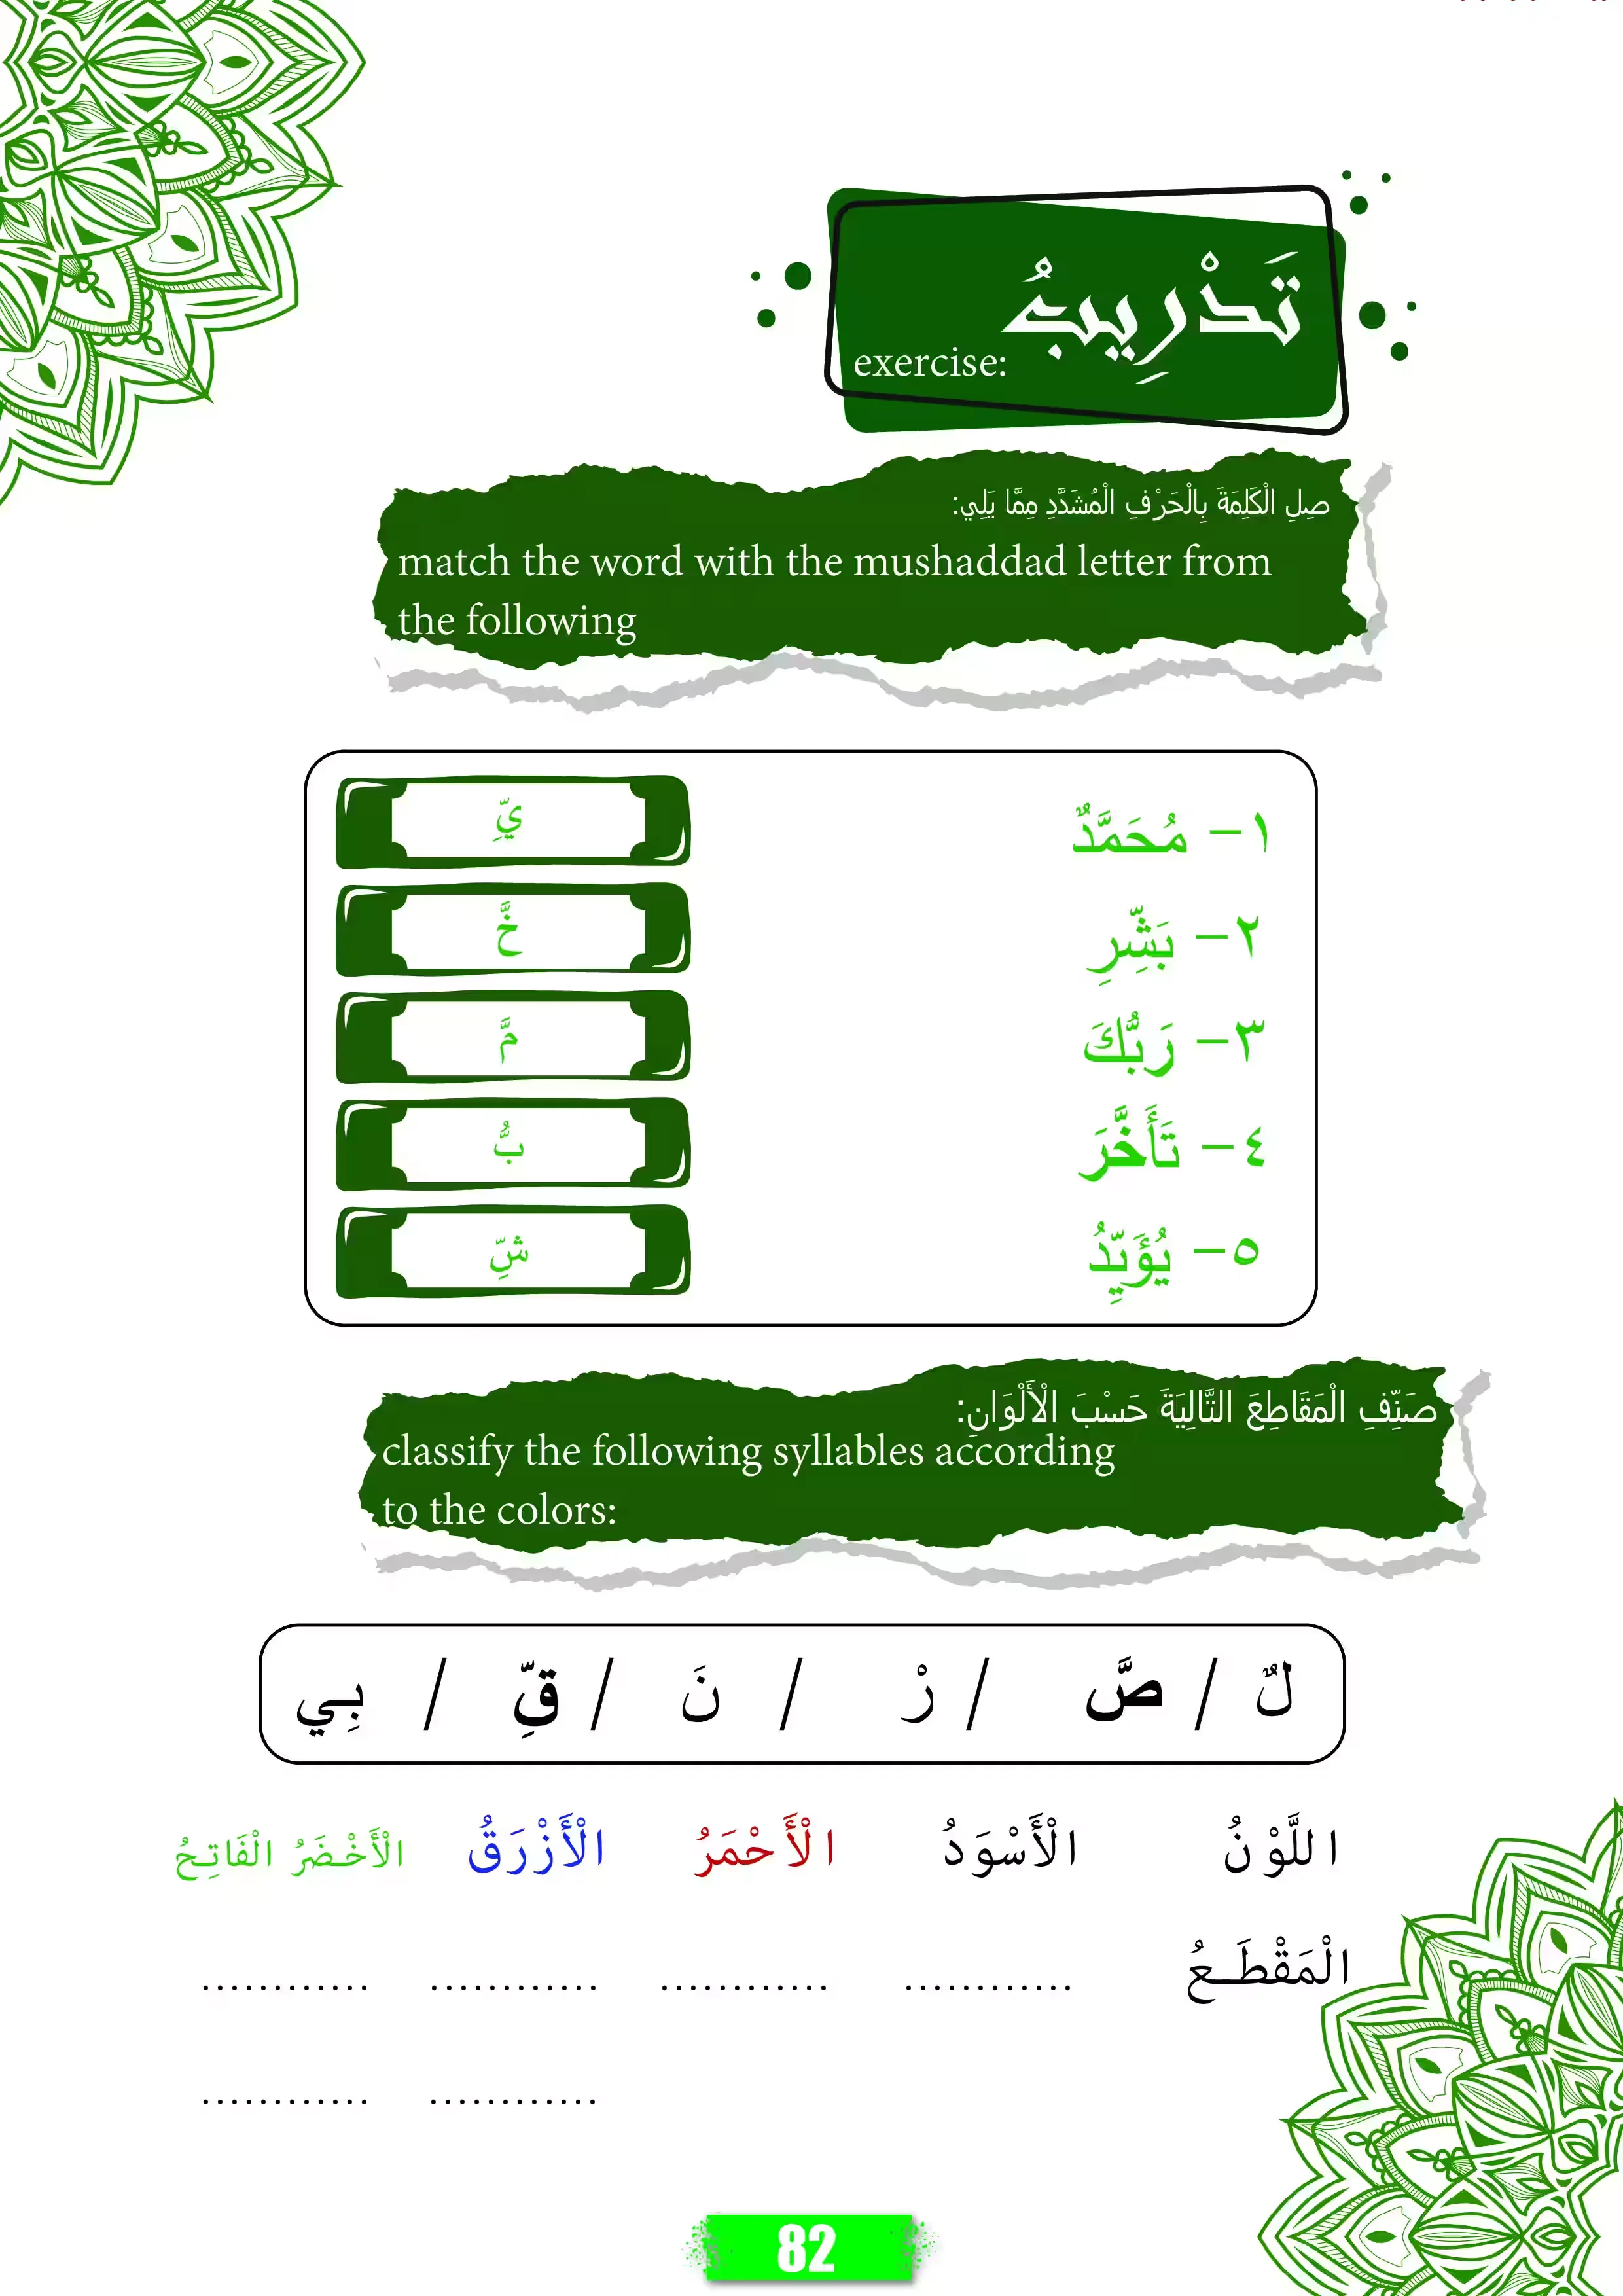 تَدْرِيبٌ
exercise:
صِلِ الْكَلِمَةَ بِالْحَرْفِ الْمُشَدَّدِ مِمَّا يَلِي:
match the word with the mushaddad letter from
the following
١- مُحَمَّدٌ
يِّ
٢- بَشِّرِ
خَّ
٣- رَبُّكَ
مَّ
٤- تَأَخَّرَ
بُّ
٥- يُؤَيِّدُ
شِّ
صَنِّفِ الْمَقَاطِعَ التَّالِيَةَ حَسْبَ الْأَلْوَانِ:
classify the following syllables according
to the colors:
لٌ / صَّ / رْ / نَ / قِّ / بِي
اللَّوْنُ الْأَسْوَدُ الْأَحْمَرُ الْأَزْرَقُ الْأَخْضَرُ الْفَاتِحُ
الْمَقْطَـعُ ............ ............ ............ ............
............ ............
82